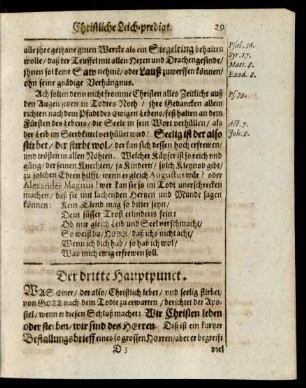 Christliche Leich-predigt. 29
alle jhre gethane guten Wercke als ein Siegelring behalten
wolle/ daß der Teuffel mit allen Hexen und Drachengesinde/
jhnen sol keine Saw nehmen/ oder Lauß zuwerffen können/
ohn seine gnädige Verhängnus.
Ach solten denn nicht fromme Christen alles Zeitliche auß
den Augen setzen in Todtes Noth/ jhre Gedancken allein
richten nach dem Pfadt des ewigen Lebens/ fest halten an dem
Fürsten des Lebens/ die Seele in sein Wort verhüllen/ als
der Leib im Sterbkittel verhüllet wird? Seelig ist der also
stirbet/ der stirbt wol/ der kan sich dessen hoch erfrewen/
und trösten in allen Nöhten. Welcher Käyser ist so reich und
gütig/ der seinen Knechten/ ja Kindern/ solch Kleynod gibt/
zu solchen Ehren hilfft/ wenn er gleich Augustus wär? oder
Alexander Magnus? wer kan sie so im Todt unerschrecken
machen/ daß sie mit lachenden Hertzen und Munde sagen
können: Kein Elend mag so bitter seyn/
Dein süsser Trost erlindert sein:
Ob mir gleich Leib und Seel verschmacht/
So weistu/ HErr/ daß ichs nicht acht/
Wenn ich dich hab/ so hab ich wol/
Was mich ewig erfrewen soll.
Der dritte Hauptpunct.
WAs einer/ der also/ Christlich lebet/ und seelig stirbet/
von GOtt nach dem Tode zu erwarten/ berichtet der Apo-
stel/ wenn er diesen Schluß machet: Wir Christen leben
oder sterben/ wir sind des HErren. Diß ist ein kurtzer
Bestallungsbrieff eines so grossen Herren/ aber er begreift
D 3 viel
Syr. 17.
Matt. 8.
Exod. 8.
Pf. 73.
Act. 7.
Joh. 8.